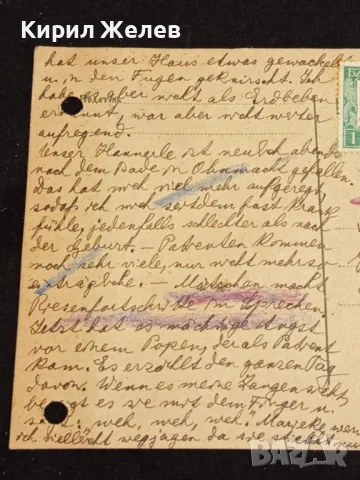 Кирил Желев
hat unser Haus etwas gewackelt
u. in den Fugen geknirscht. Ich
habe es aber nicht als Erdbeben
erkannt, war aber nicht weiter
aufregend.
Unser Hannerle ist neulich abends
nach dem Bade in Ohnmacht gefallen.
Das hat mich viel mehr aufgeregt,
sodaß ich mich seitdem fast krank
fühle, jedenfalls schlechter als nach
der Geburt. — Patienten kommen
noch sehr viele, nur nicht mehr so
erträgliche. — macht
Riesenfortschritte im Sprechen.
Jetzt hat es mächtige Angst
vor einem Popen, der als Patient
kam. Es erzählt den ganzen Tag
davon. Wenn es meine Zangen sieht
es sie mit dem Finger u.
sagt: weh, weh, weh.
ich vielleicht wegjagen da sie nur
bazar.bg